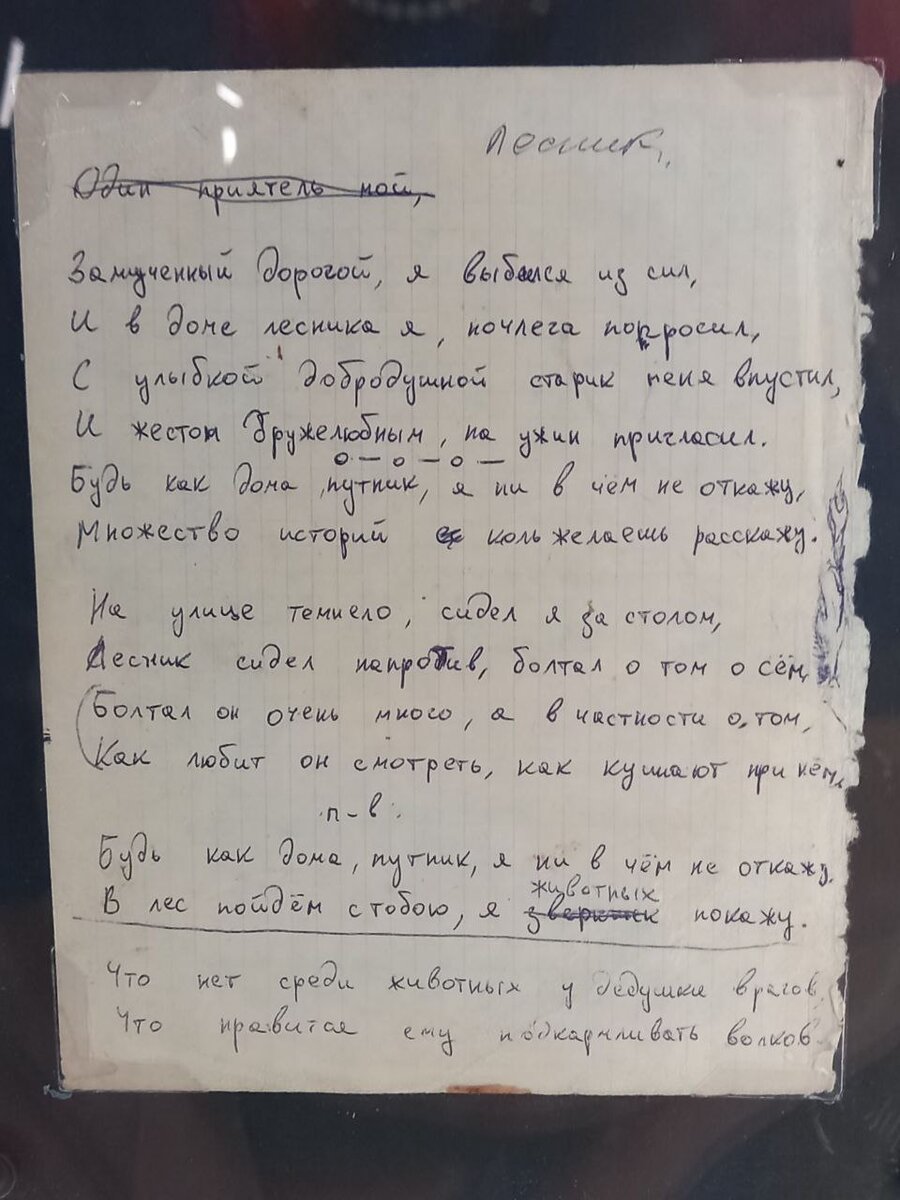 Лесник,
Один приятель мой,
Замученный дорогой, я выбился из сил,
И в доме лесника я, ночлега попросил,
С улыбкой добродушной старик меня впустил,
И жестом дружелюбным, на ужин пригласил.
о – о – о –
Будь как дома, путник, я ни в чём не откажу,
Множество историй коль желаешь расскажу.
На улице темнело, сидел я за столом,
Лесник сидел напротив, болтал о том о сём,
Болтал он очень много, а в частности о том,
Как любит он смотреть, как кушают при нём.
п – в.
Будь как дома, путник, я ни в чём не откажу.
животных
В лес пойдём с тобою, я зверюшек покажу.
Что нет среди животных у дедушки врагов
Что нравится ему подкармливать волков